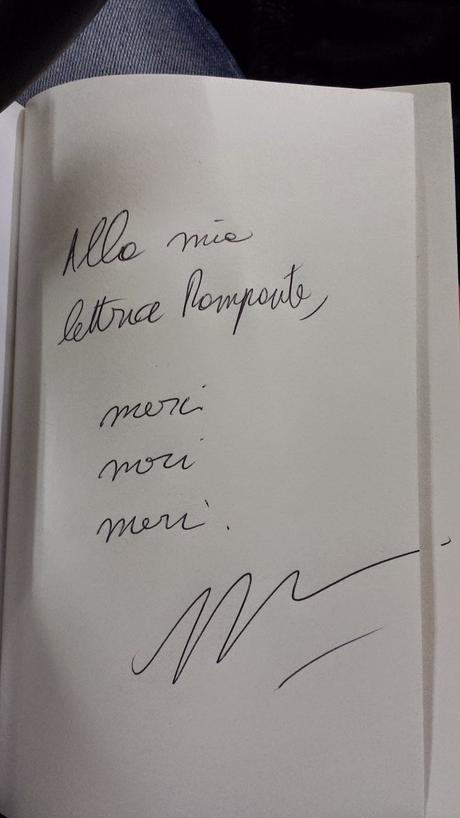 Alla mia
lettrice Rampante,
merci
merci
merci.